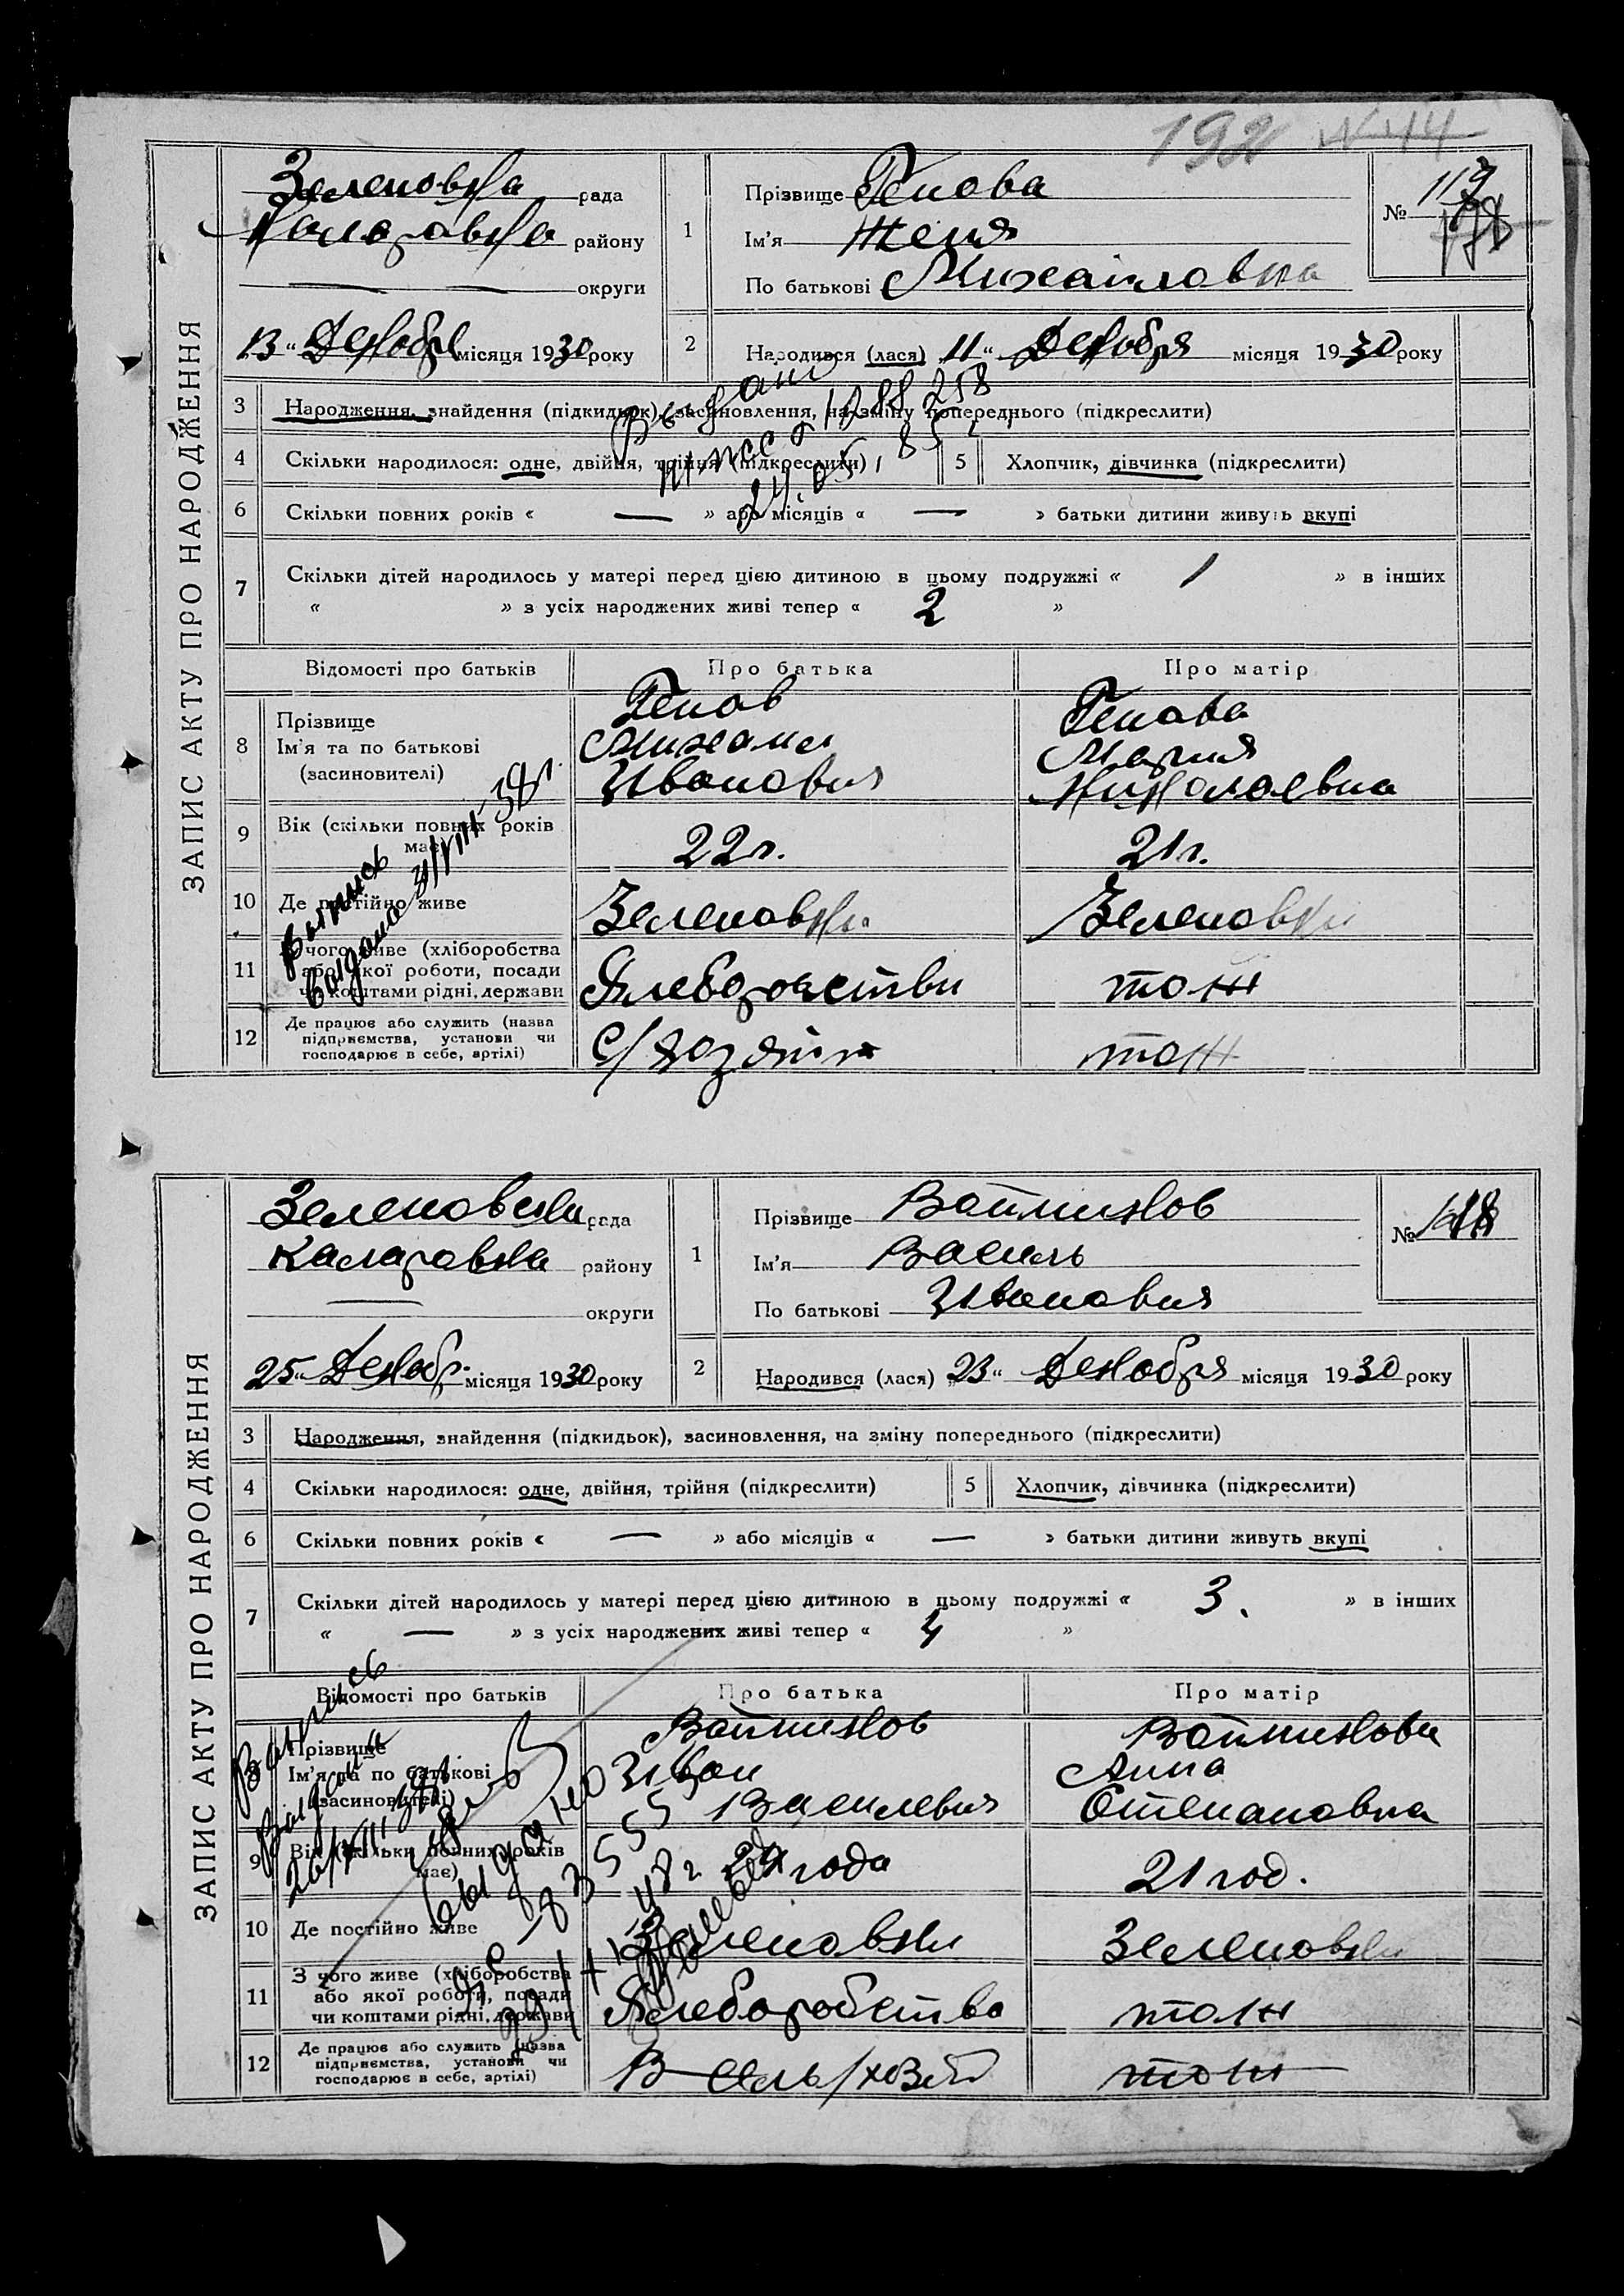 192
ЗАПИС АКТУ ПРО НАРОДЖЕННЯ
Зеленовка рада
Коларовка району
— — округи
13 " Декабря місяця 1930 року
1
Прізвище Генова
Ім'я Женя
По батькові Михайловна
№ 117
2
Народився (лася) 11 " Декабря місяця 1930 року
3 Народження, знайдення (підкидьок), засиновлення, на зміну попереднього (підкреслити)
4 Скільки народилося: одне, двійня, трійня (підкреслити) 5 Хлопчик, дівчинка (підкреслити)
6 Скільки повних років « — » або місяців « — » батьки дитини живуть вкупі
7 Скільки дітей народилось у матері перед цією дитиною в цьому подружжі « 1 » в інших
« » з усіх народжених живі тепер « 2 »
Відомості про батьків Про батька Про матір
8 Прізвище Генов Генова
Ім'я та по батькові Михаил Мария
(засновителі) Иванович Николаевна
9 Вік (скільки повних років має) 22 г. 21 г.
10 Де постійно живе Зеленовки Зеленовки
11 З чого живе (хліборобства або якої роботи, посади чи коштами рідні, держави тож
12 Де працює або служить (назва підприємства, установи чи господарює в себе, артілі) тож
Выдано
24.05.85
Выпись
выдана 31/VIII-38г.
ЗАПИС АКТУ ПРО НАРОДЖЕННЯ
рада
Каларовка району
— округи
25 " Декабр. місяця 1930 року
1
Прізвище Войников
Ім'я Василь
По батькові Иванович
№ 118
2
Народився (лася) 23 " Декабря місяця 1930 року
3 Народження, знайдення (підкидьок), засиновлення, на зміну попереднього (підкреслити)
4 Скільки народилося: одне, двійня, трійня (підкреслити) 5 Хлопчик, дівчинка (підкреслити)
6 Скільки повних років « — » або місяців « — » батьки дитини живуть вкупі
7 Скільки дітей народилось у матері перед цією дитиною в цьому подружжі « 3. » в інших
« — » з усіх народжених живі тепер « 4 »
Відомості про батьків Про батька Про матір
Прізвище Войников Войникова
Ім'я та по батькові Иван Анна
(засиновителі) Василевич Степановна
9 Вік (скільки повних років має) года 21 год.
10 Де постійно живе Зеленовки Зеленовки
11 З чого живе (хліборобства або якої роботи, посади чи коштами рідні, держави Хлеборобство тож
12 Де працює або служить (назва підприємства, установи чи господарює в себе, артілі) тож
Выпись
Выдана
выдано